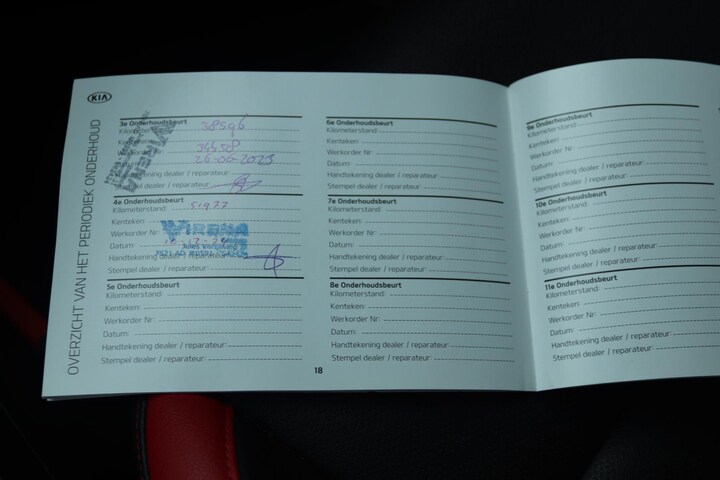 KIA
OVERZICHT VAN HET PERIODIEK ONDERHOUD
3e Onderhoudsbeurt
Kilometerstand: 38596
Kenteken:
Werkorder Nr:
Datum:
Handtekening dealer / reparateur:
Stempel dealer / reparateur:
4e Onderhoudsbeurt
Kilometerstand: 51977
Kenteken:
Werkorder Nr:
Datum:
Handtekening dealer / reparateur:
Stempel dealer / reparateur:
5e Onderhoudsbeurt
Kilometerstand:
Kenteken:
Werkorder Nr:
Datum:
Handtekening dealer / reparateur:
Stempel dealer / reparateur:
6e Onderhoudsbeurt
Kilometerstand:
Kenteken:
Werkorder Nr:
Datum:
Handtekening dealer / reparateur:
Stempel dealer / reparateur:
7e Onderhoudsbeurt
Kilometerstand:
Kenteken:
Werkorder Nr:
Datum:
Handtekening dealer / reparateur:
Stempel dealer / reparateur:
8e Onderhoudsbeurt
Kilometerstand:
Kenteken:
Werkorder Nr:
Datum:
Handtekening dealer / reparateur:
Stempel dealer / reparateur:
18
9e Onderhoudsbeurt
Kilometerstand:
Kenteken:
Werkorder Nr:
Datum:
Handtekening dealer / reparateur:
Stempel dealer / reparateur:
10e Onderhoudsbeurt
Kilometerstand:
Kenteken:
Werkorder Nr:
Datum:
Handtekening dealer / reparateur:
Stempel dealer / reparateur:
11e Onderhoudsbeurt
Kilometerstand:
Kenteken:
Werkorder Nr:
Datum:
Handtekening dealer / reparateur:
Stempel dealer / reparateur: